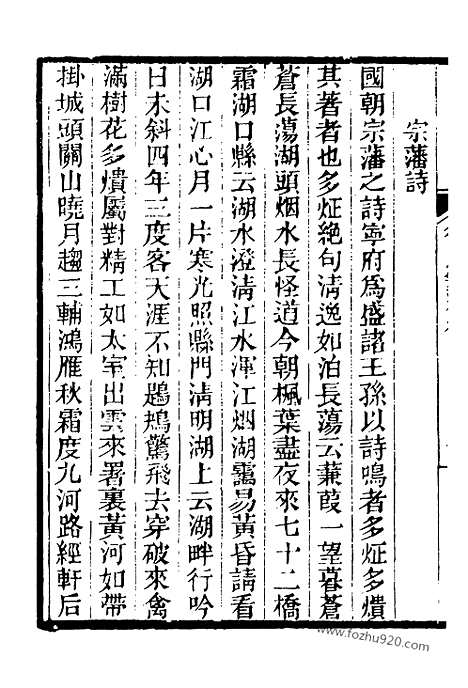 宗藩詩
國朝宗藩之詩寧府為盛諸王孫以詩鳴者多炡多燌
其著者也多炡絶句清逸如泊長蕩云蒹葭一望暮蒼
蒼長蕩湖頭烟水長怪道今朝楓葉盡夜來七十二橋
霜湖口縣云湖水澄清江水渾江烟湖靄易黃昏請看
湖口江心月一片寒光照縣門清明湖上云湖畔行吟
日未斜四年三度客天涯不知鶗鴂驚飛去穿破來禽
滿樹花多燌屬對精工如太室出雲來署裏黃河如帶
掛城頭關山曉月趨三輔鴻雁秋霜度九河路經軒后
www.fozhu920.com